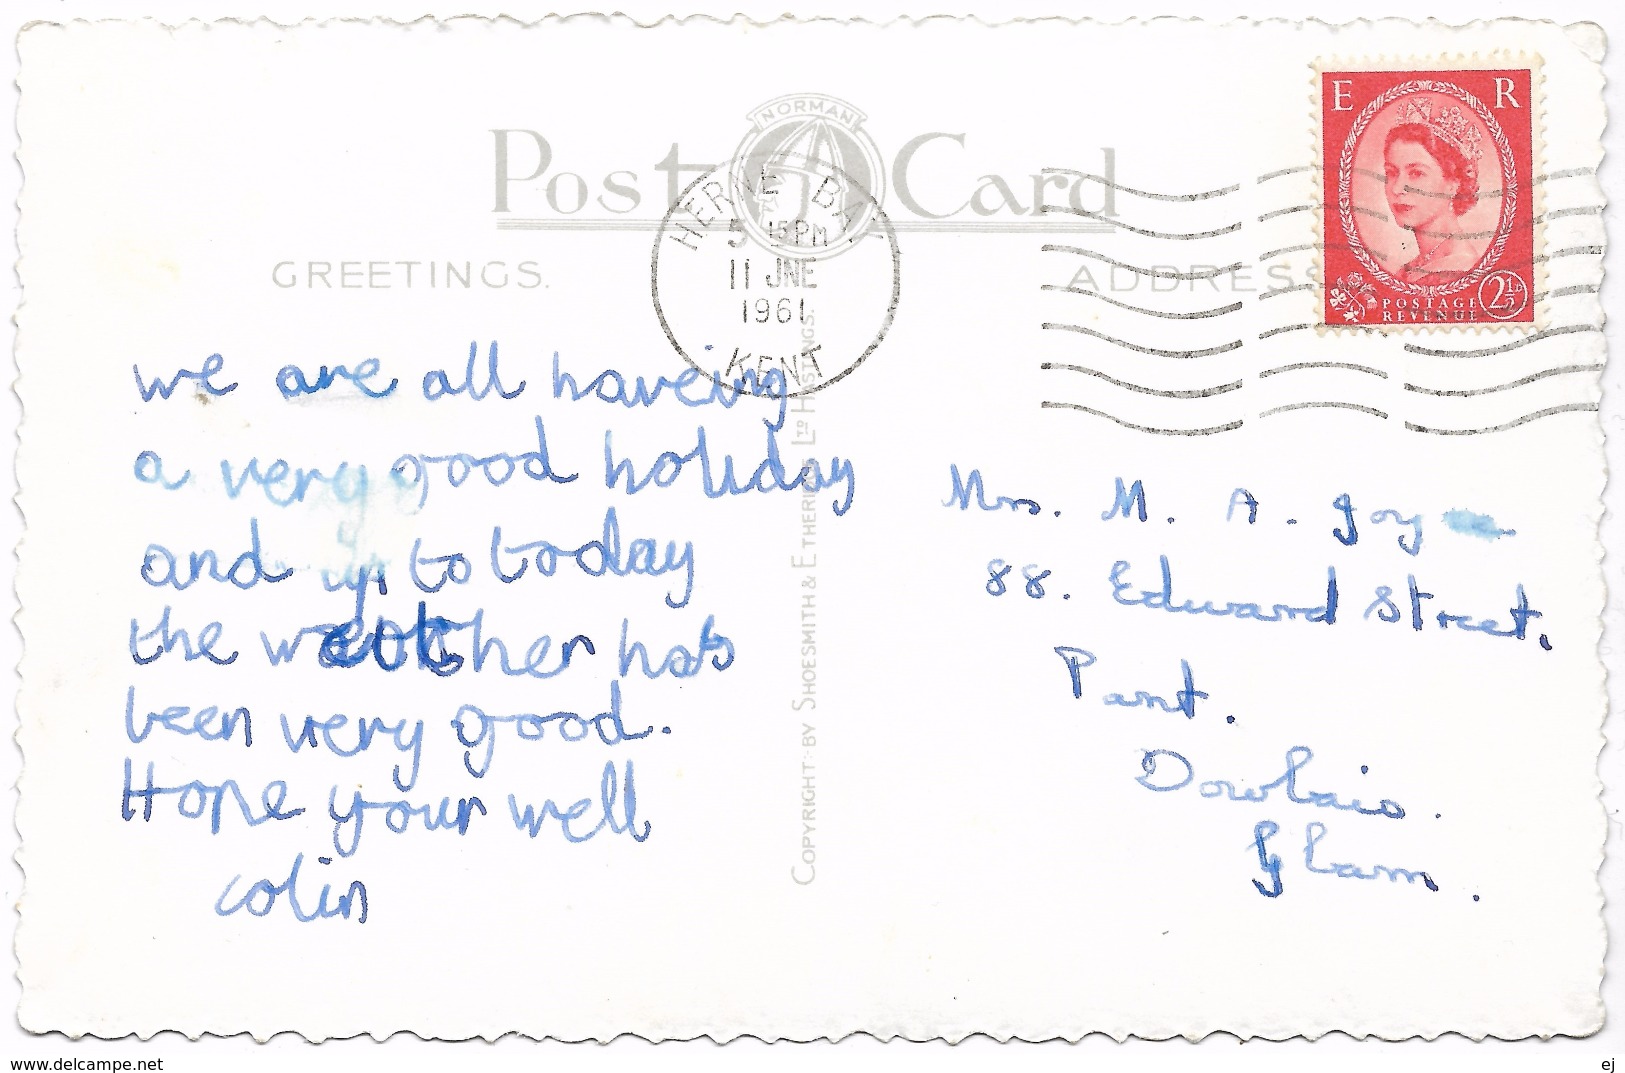 NORMAN
Post Card
GREETINGS.
ADDRESS
HERNE BAY
5 15 PM
11 JNE
1961
KENT
E R
POSTAGE
REVENUE
2½D
we are all haveing
a very good holiday
and up to today
the weather has
been very good.
Hope your well
colin
COPYRIGHT:- BY SHOESMITH & ETHERIDGE LTD HASTINGS.
Mrs. M. A. Joy
88. Edward Street.
Pant.
Dowlais.
Glam.
www.delcampe.net
ej